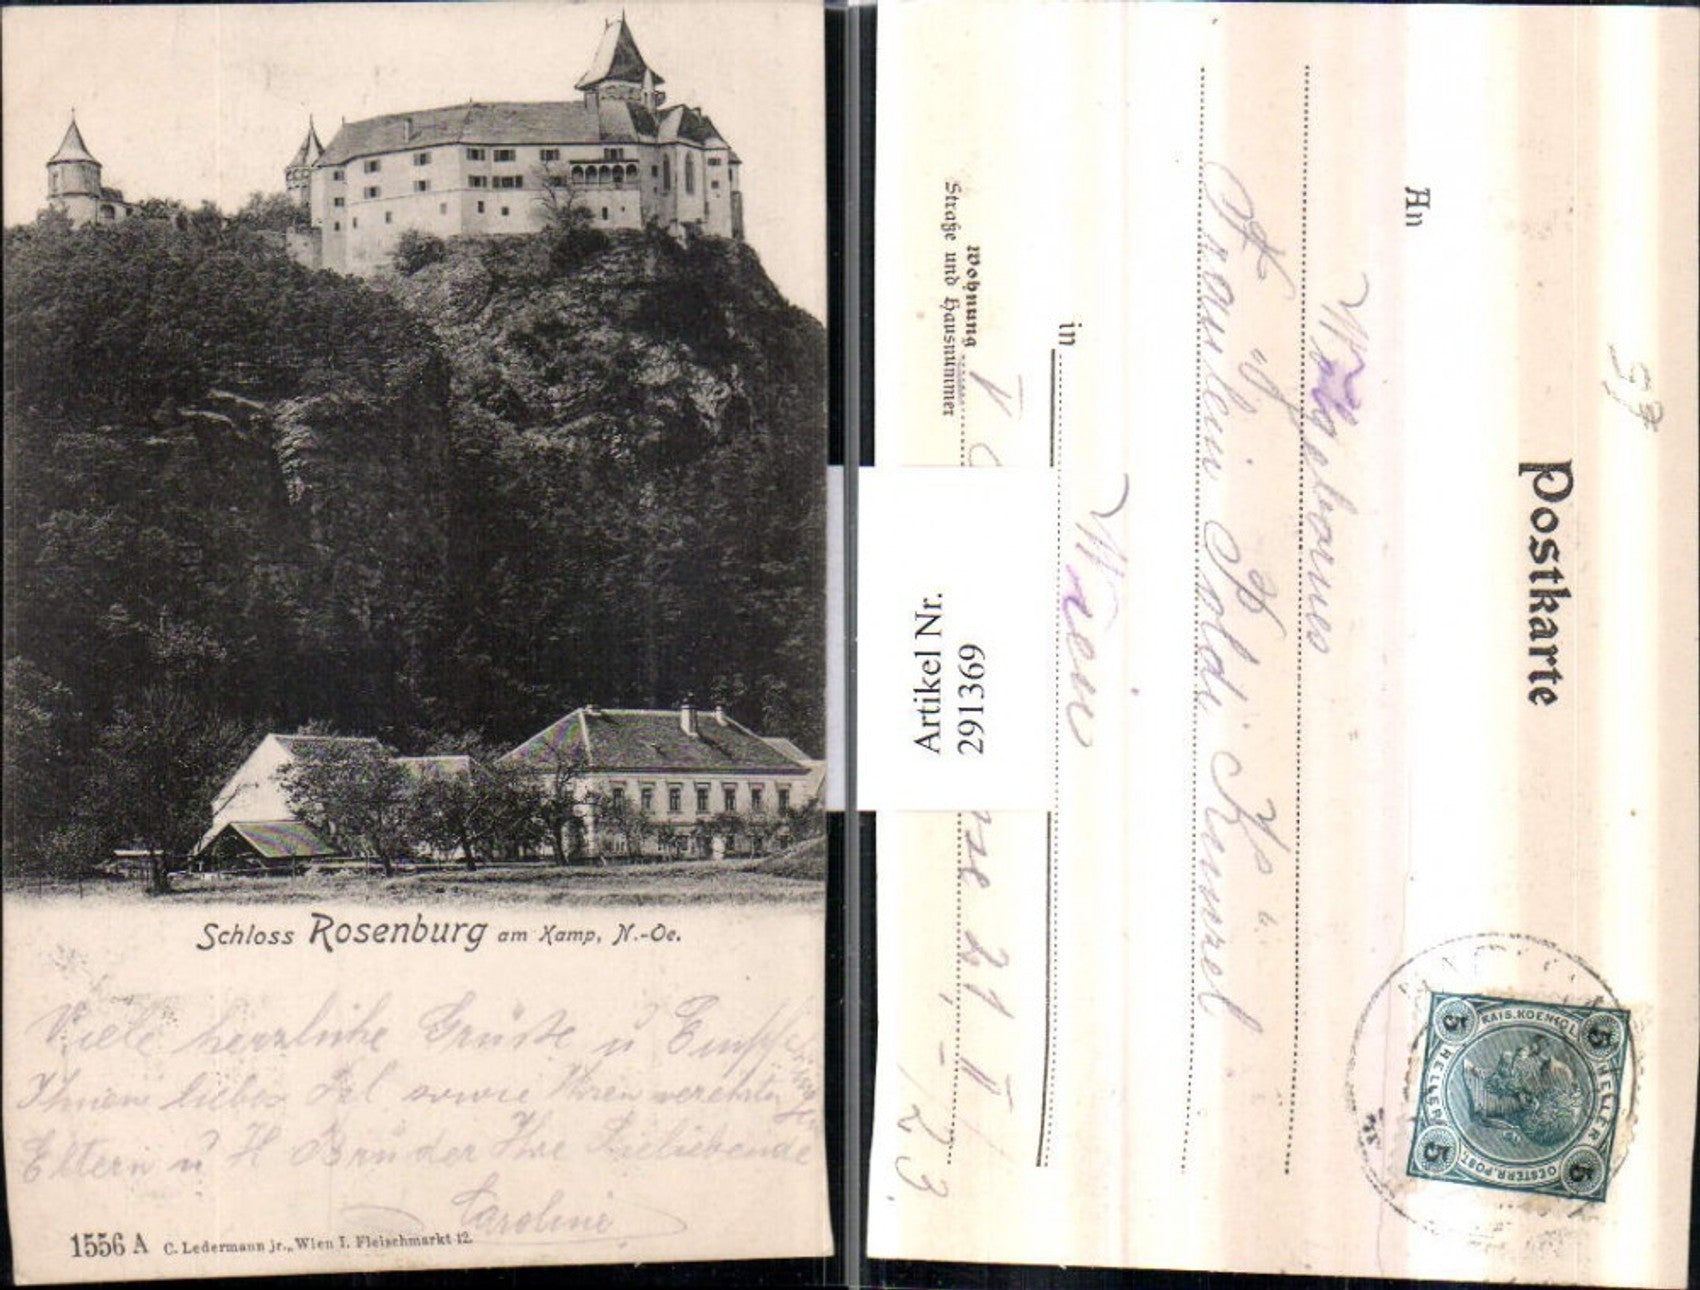 Schloss Rosenburg am Kamp, N.-Oe.
Viele herzliche Grüsse u Empf
Ihnen liebes Frl sowie Ihren verehrten
Eltern u H Brüder Ihre Sie liebende
Caroline
1556 A C. Ledermann jr., Wien I. Fleischmarkt 12.
Postkarte
An
Wohlgebornes
Fräulein Poldi Kemmel
in Wien
Wohnung
Straße und Hausnummer
21
Artikel Nr.
291369
KAIS. KOENIGL.
OESTERR. POST.
5 HELLER 5
5 HELLER 5